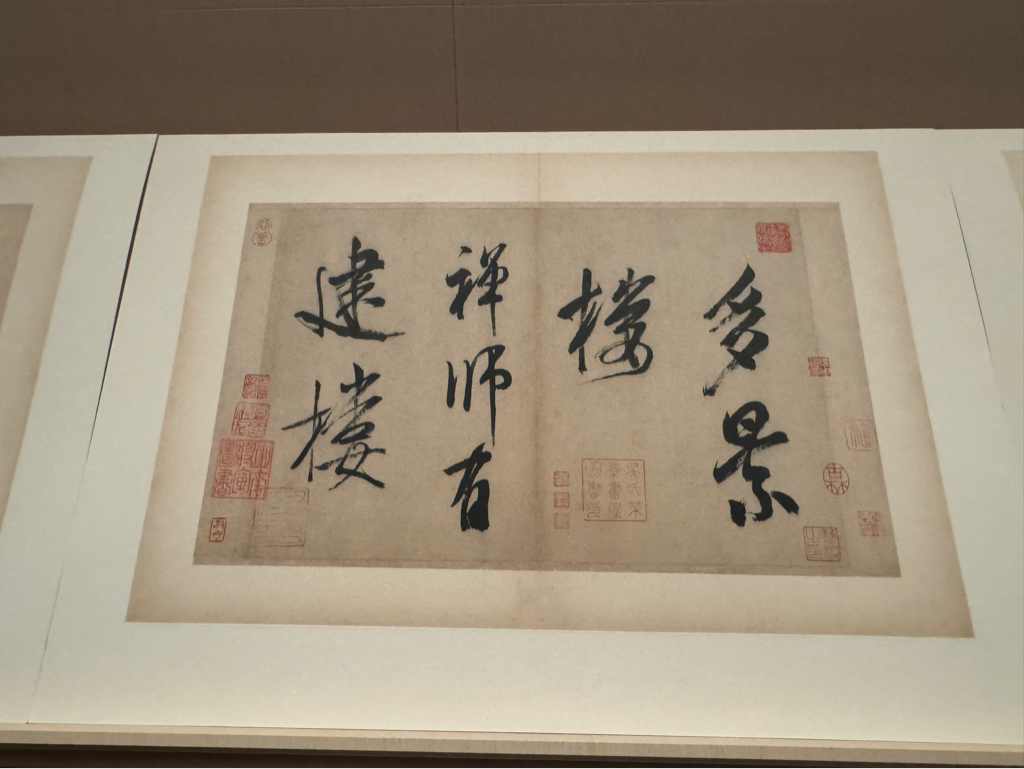 多景
樓
禪師有
建樓